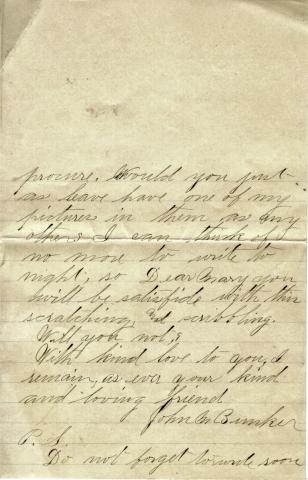 procure. Would you just
as leave have one of my
pictures in them as any
other, I can think of
no more to write to
night, so Dear Mary you
will be satisfide with this
scratching, and scribbling.
Will you, not,
With kind love to you, I
remain, as ever your kind
and loving friend
John M Bunker
P. S.
Do not forget to write soon